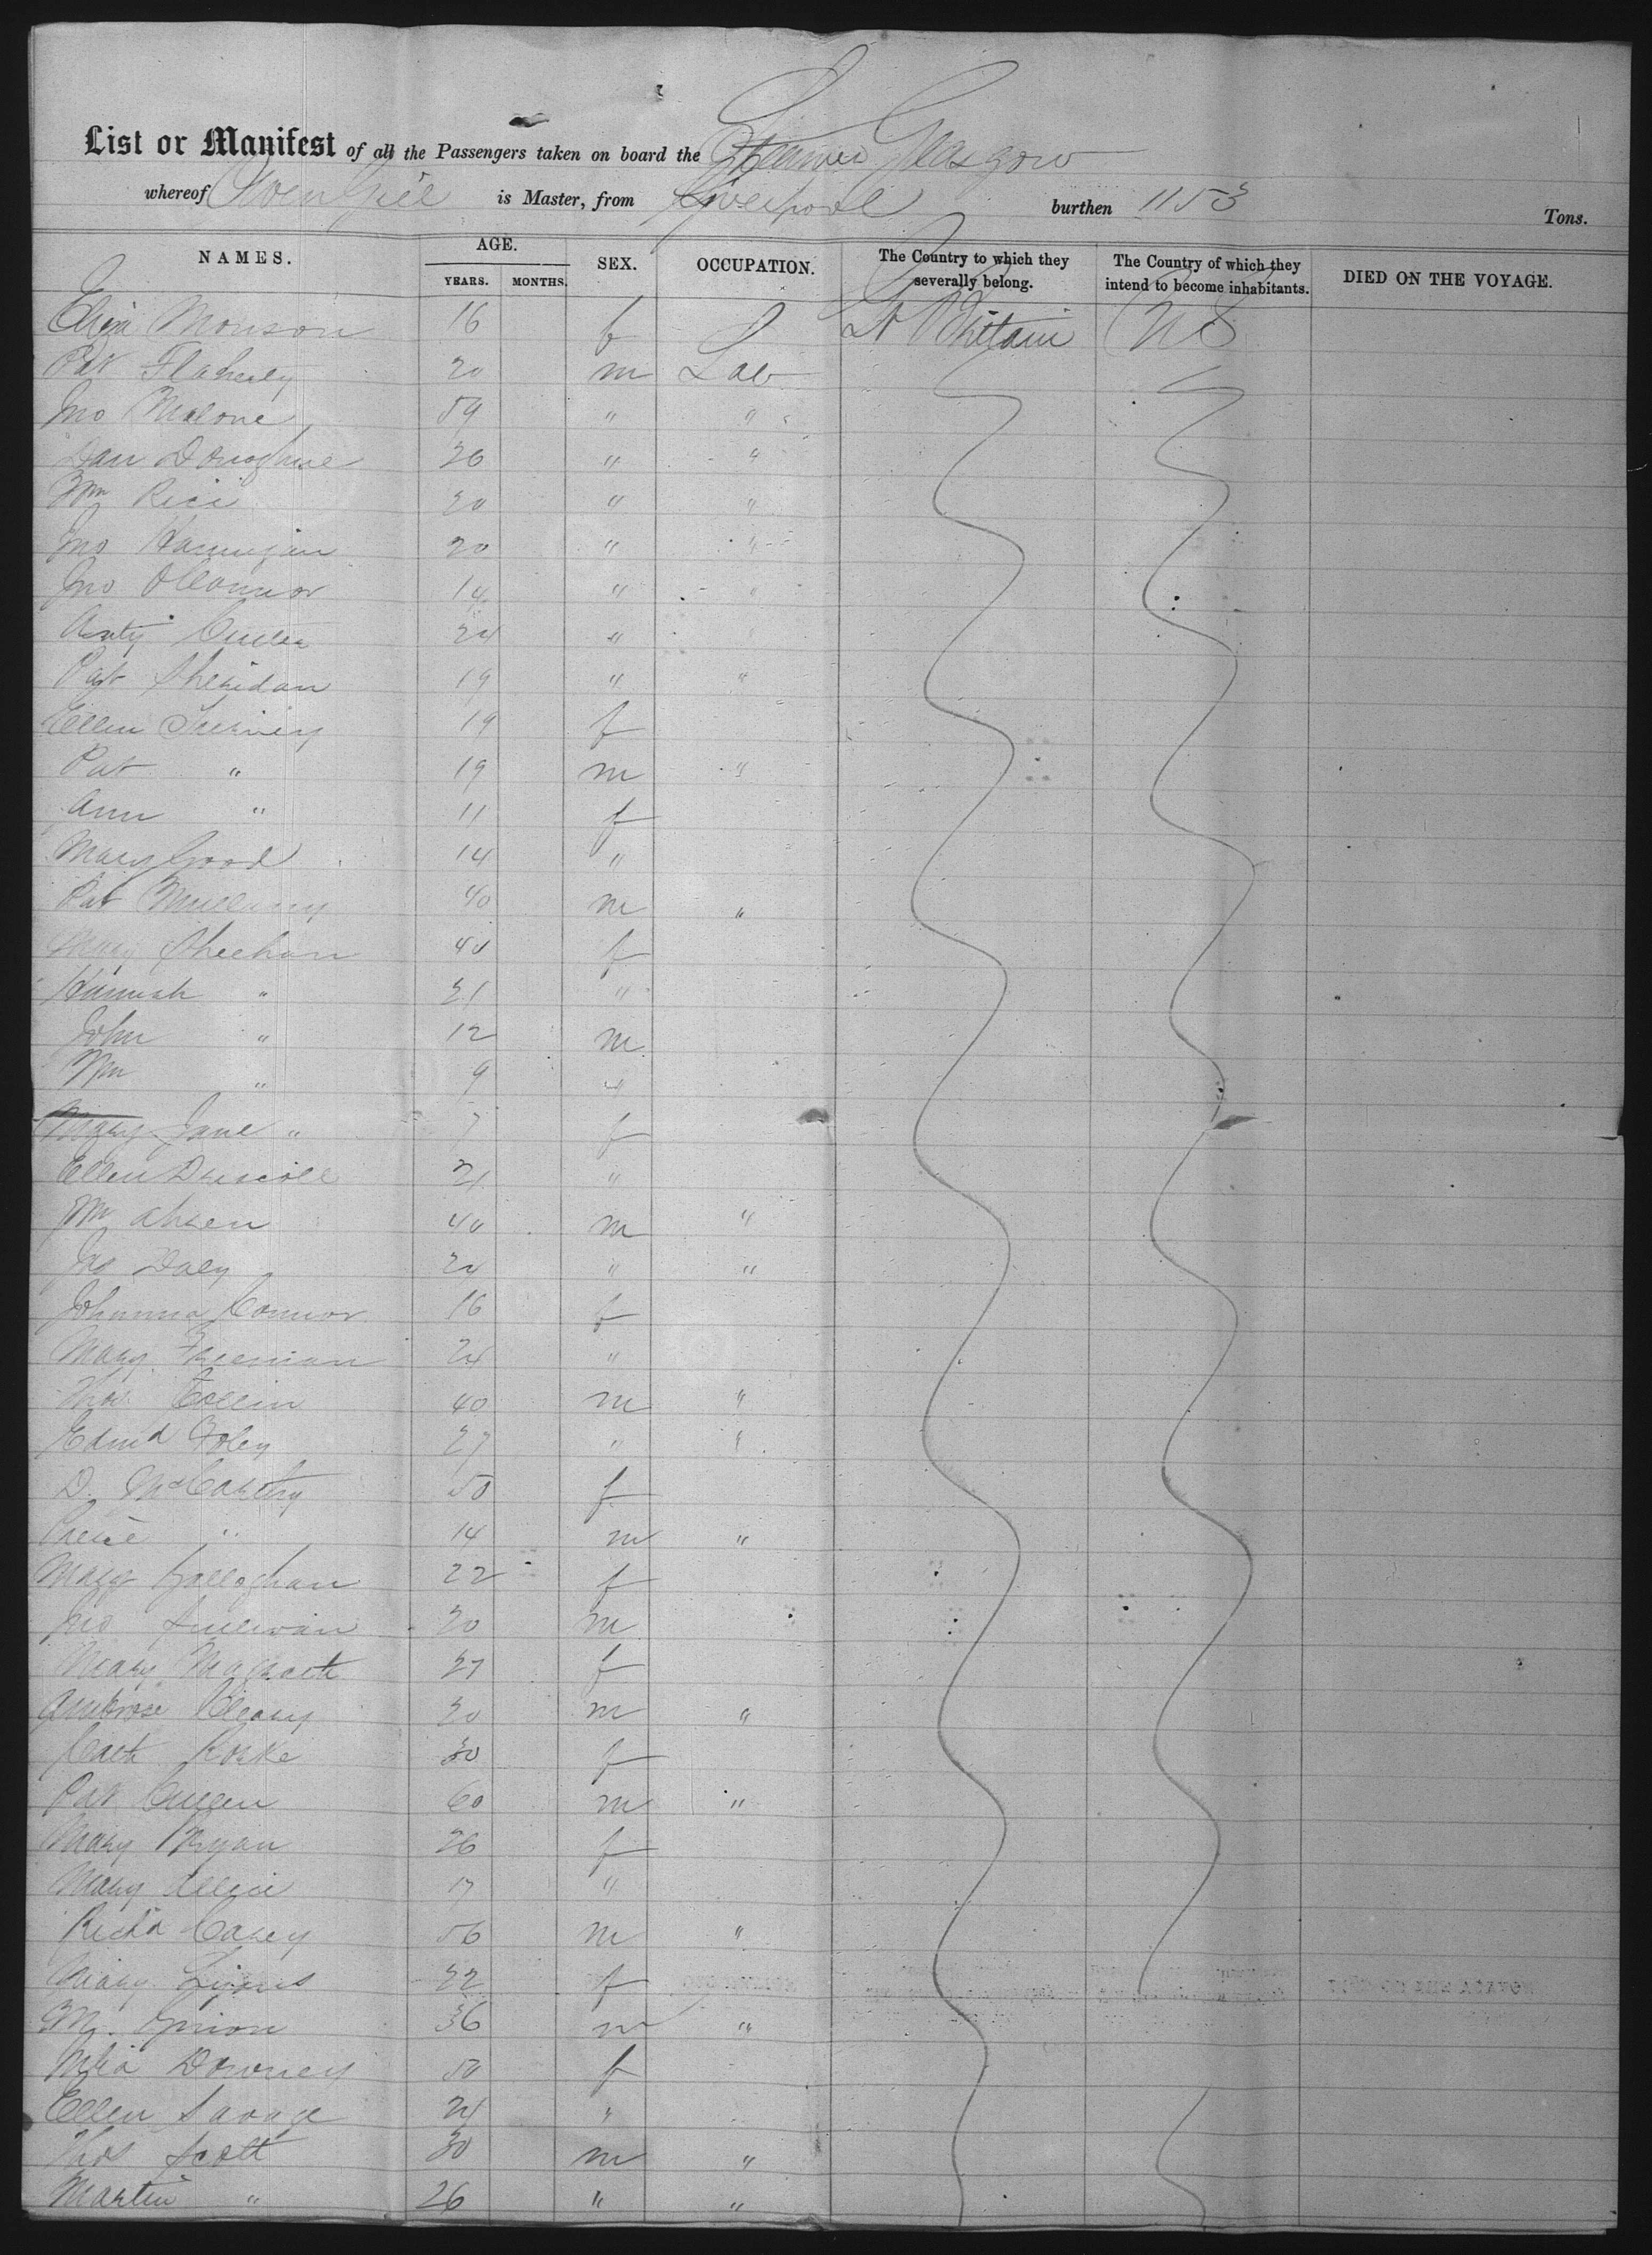 List or Manifest of all the Passengers taken on board the Steamer Glasgow
whereof is Master, from Liverpool burthen 1153 Tons.
NAMES. AGE. YEARS. MONTHS. SEX. OCCUPATION. The Country to which they severally belong. The Country of which they intend to become inhabitants. DIED ON THE VOYAGE.
Eliza Monson 16 f Gt Britain US
Pat Flaherty 20 m Lab
Jno Malone 59 " "
Dan Donoghue 26 " "
Wm Rice 20 " "
Jno Hannigan 20 " "
Jno OConnor 14 " "
Anty 24 " "
Pat Sheridan 19 " "
Ellen 19 f
Pat " 19 m "
Ann " 11 f
Mary Good 14 "
Pat Mullany 40 m "
Mary Sheehan 40 f
Hannah " 21 "
John " 12 m
Wm " 9 "
Mary Jane " 7 f
Ellen Driscoll 21 "
Wm Ahern 40 m "
Jno Daly 24 " "
Johanna Connor 16 f
Mary Freeman 24 "
Thos Collin 40 m "
Edmd Foley 27 " "
D. McCarthy 50 f
" 14 m "
Mary Gallaghan 22 f
Jno Sullivan 20 m
Mary Magrath 27 f
Ambrose Cleary 20 m "
Cath Rorke 30 f
Pat Cullen 60 m "
Mary Ryan 26 f
Mary 17 "
Richd Casey 56 m "
Mary Lyons 22 f
M. 36 m "
Downey 50 f
Ellen Savage 21 "
Thos Scott 30 m "
Martin " 26 " "